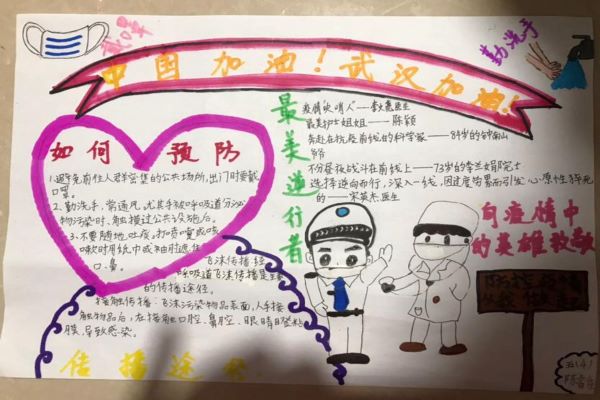 戴口罩
勤洗手
中国加油！武汉加油！
如何预防
1.避免前往人群密集的公共场所,出门时要戴
口罩。
2.勤洗手,常通风,尤其手被呼吸道分泌
物污染时、触摸过公共设施后。
3.不要随地吐痰,打喷嚏或咳
嗽时用纸巾或袖肘遮住
口、鼻。
最美逆行者
疫情吹哨人——李文亮医生
最美护士姐姐——陈颖
奔赴在抗疫前线的科学家——84岁的钟南山
爷爷
不分昼夜战斗在前线上——73岁的李兰娟院士
选择逆向而行,深入一线,因过度劳累而引发心源性猝死
的——宋英杰医生
向疫情中
的英雄致敬
飞沫传播:经
呼吸道飞沫传播是主要
的传播途径。
接触传播:飞沫污染物品表面,人手接
触物品后,在接触口腔、鼻腔、眼睛的粘
膜,导致感染。
传播途径
五(4)